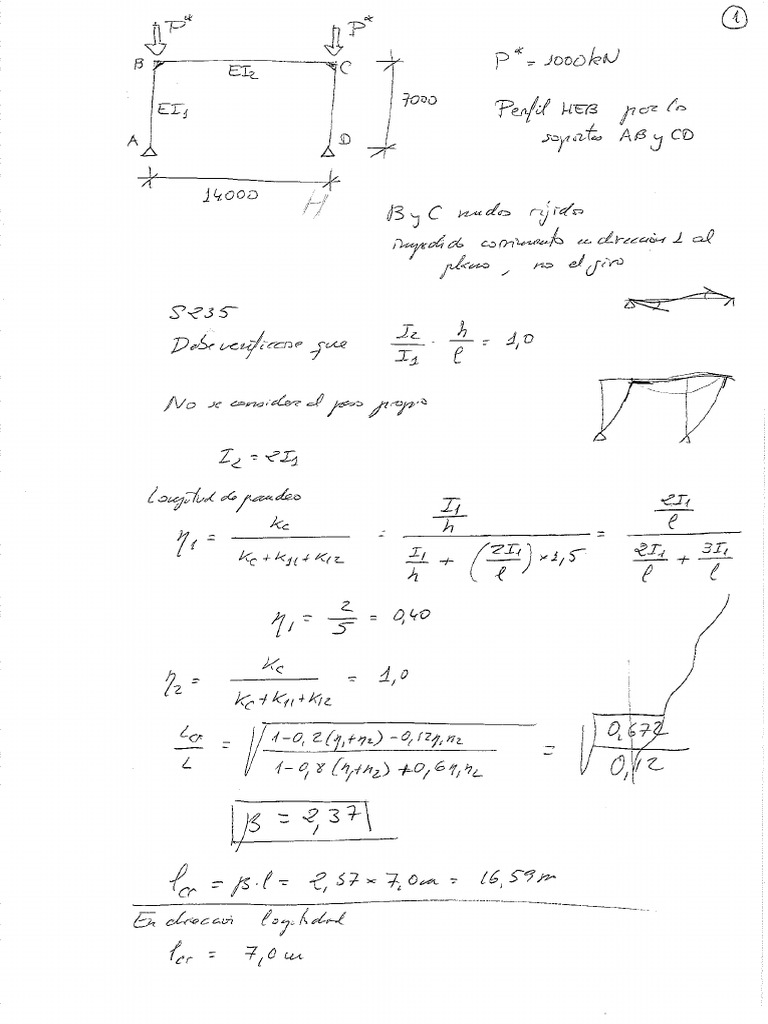 1
P* P*
B EI₂ C
EI₁ 7000
A D
14000 H
P* = 1000kN
Perfil HEB par los
soportes AB y CD
B y C nudos rígidos
impedido corrimiento en dirección ⊥ al
plano, no el giro
S235
Debe verificarse que I₂/I₁ · h/l = 1,0
No se considera el peso propio
I₂ = 2I₁
Longitud de pandeo
η₁ = Kc/(Kc+K11+K12) = (I₁/h)/(I₁/h + (2I₁/l)×1,5) = (2I₁/l)/(2I₁/l + 3I₁/l)
η₁ = 2/5 = 0,40
η₂ = Kc/(Kc+K11+K12) = 1,0
Lcr/L = √((1-0,2(η₁+η₂)-0,12η₁η₂)/(1-0,8(η₁+η₂)+0,6η₁η₂)) = √(0,672/0,12)
β = 2,37
lcr = β·l = 2,37×7,0m = 16,59m
En dirección longitudinal
lcr = 7,0m